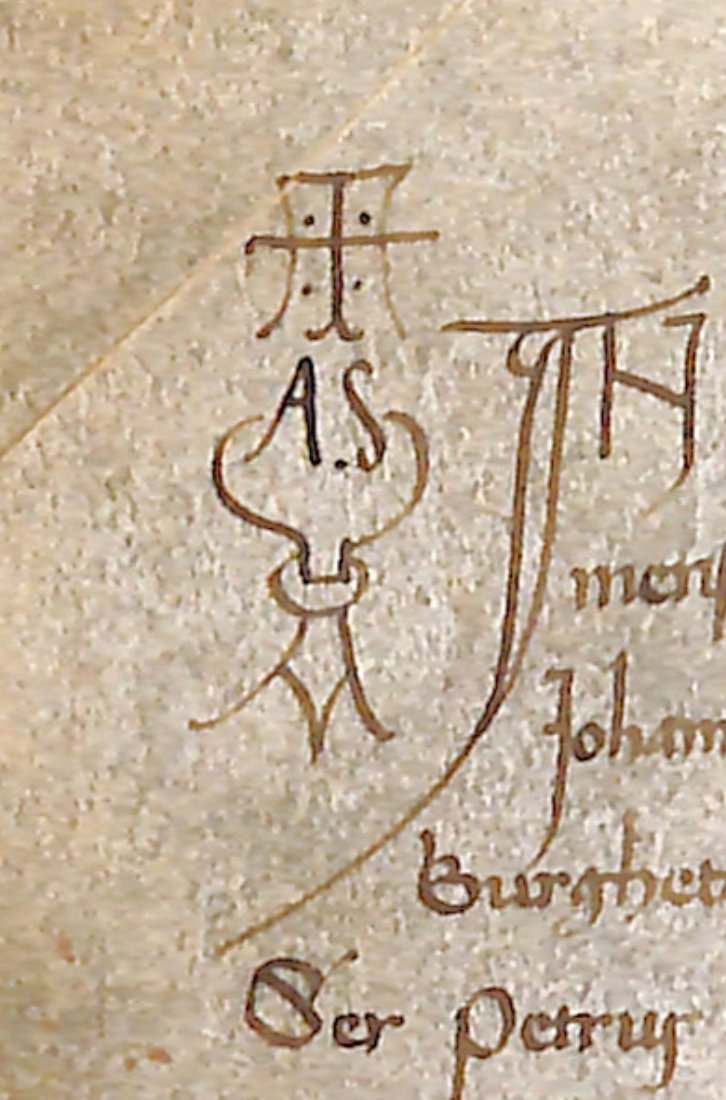 A.S
IN
mens
Johann
Burghet
Ser Petrus